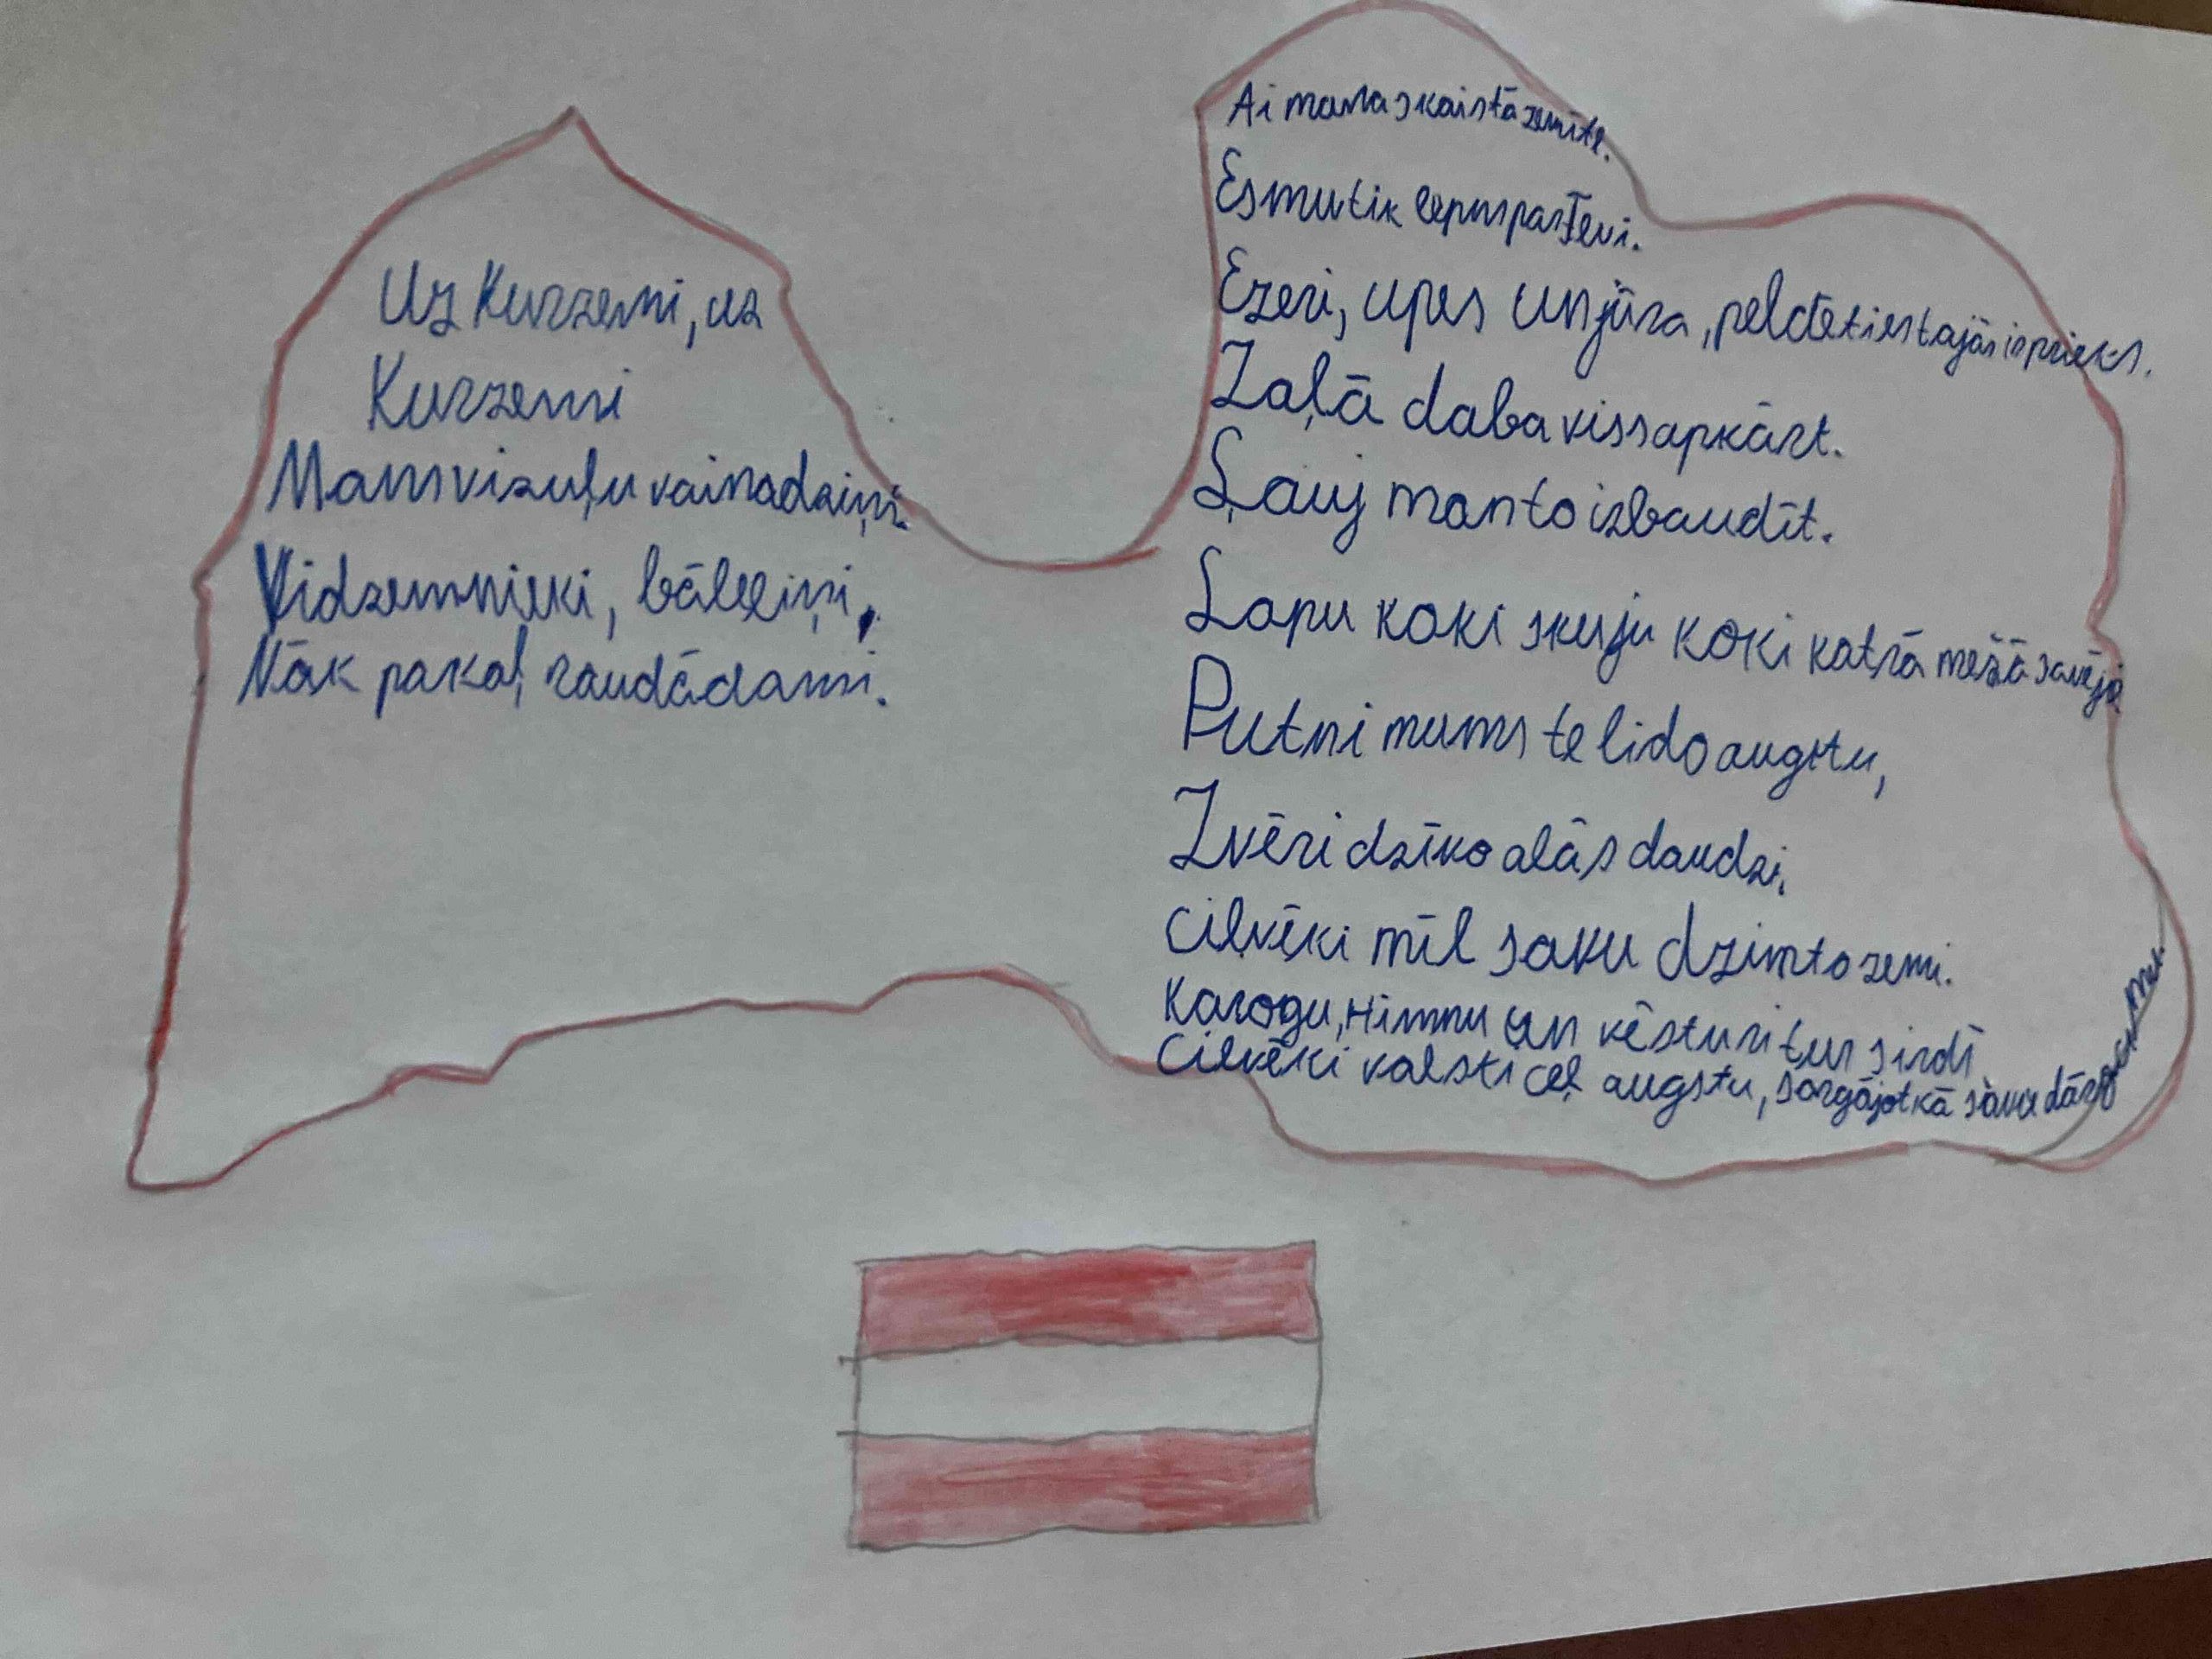 Uz Kurzemi, uz
Kurzemi
Mans vizuļu vainadziņi
Vidzemnieki, bāleliņi,
Nāk pakaļ raudādami.
Ai mana skaistā zemīte.
Esmu tik lepns par Tevi.
Ezeri, upes un jūra, peldēties tajās ir prieks.
Zaļā daba vissapkārt.
Ļauj man to izbaudīt.
Lapu koki skuju koki katrā mežā savējo
Putni mums te lido augstu,
Zvēri dzīvo alās daudzi.
Cilvēki mīl savu dzimto zemi.
Karogu, Himnu un vēsturi tur sirdī
Cilvēki valsti ceļ augstu, sargājot kā savu